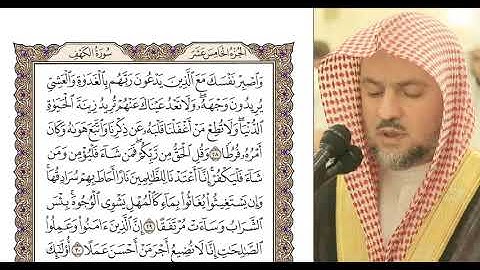 الجزء الخامس عشر
سورة الكهف
وَاصْبِرْ نَفْسَكَ مَعَ الَّذِينَ يَدْعُونَ رَبَّهُم بِالْغَدَوٰةِ وَالْعَشِيِّ
يُرِيدُونَ وَجْهَهُۥ وَلَا تَعْدُ عَيْنَاكَ عَنْهُمْ تُرِيدُ زِينَةَ الْحَيَوٰةِ
الدُّنْيَا وَلَا تُطِعْ مَنْ أَغْفَلْنَا قَلْبَهُۥ عَن ذِكْرِنَا وَاتَّبَعَ هَوَىٰهُ وَكَانَ
أَمْرُهُۥ فُرُطًا ٢٨ وَقُلِ الْحَقُّ مِن رَّبِّكُمْ فَمَن شَاءَ فَلْيُؤْمِن وَمَن
شَاءَ فَلْيَكْفُرْ إِنَّا أَعْتَدْنَا لِلظَّٰلِمِينَ نَارًا أَحَاطَ بِهِمْ سُرَادِقُهَا
وَإِن يَسْتَغِيثُوا يُغَاثُوا بِمَاءٍ كَالْمُهْلِ يَشْوِي الْوُجُوهَ بِئْسَ
الشَّرَابُ وَسَاءَتْ مُرْتَفَقًا ٢٩ إِنَّ الَّذِينَ ءَامَنُوا وَعَمِلُوا
الصَّٰلِحَٰتِ إِنَّا لَا نُضِيعُ أَجْرَ مَنْ أَحْسَنَ عَمَلًا ٣٠ أُولَٰئِكَ